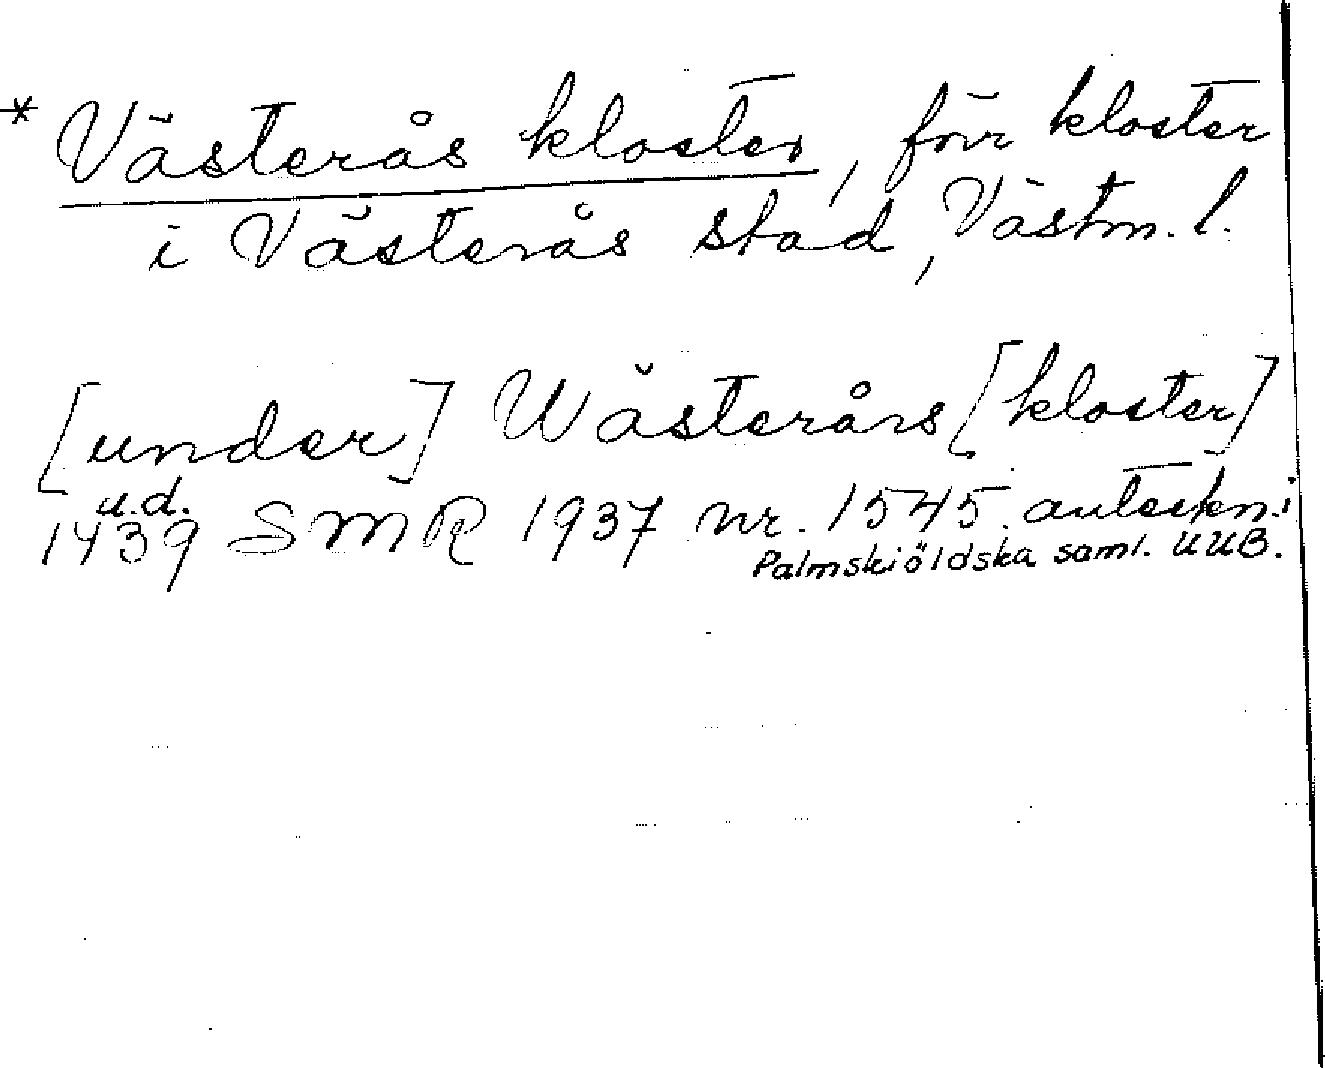 * Västerås kloster, förr kloster
i Västerås stad, Västm. l.
[under] Wästerårs [kloster]
u.d.
1439 SMR 1937 nr. 1545. anteckn. i
Palmskiöldska saml. UUB.